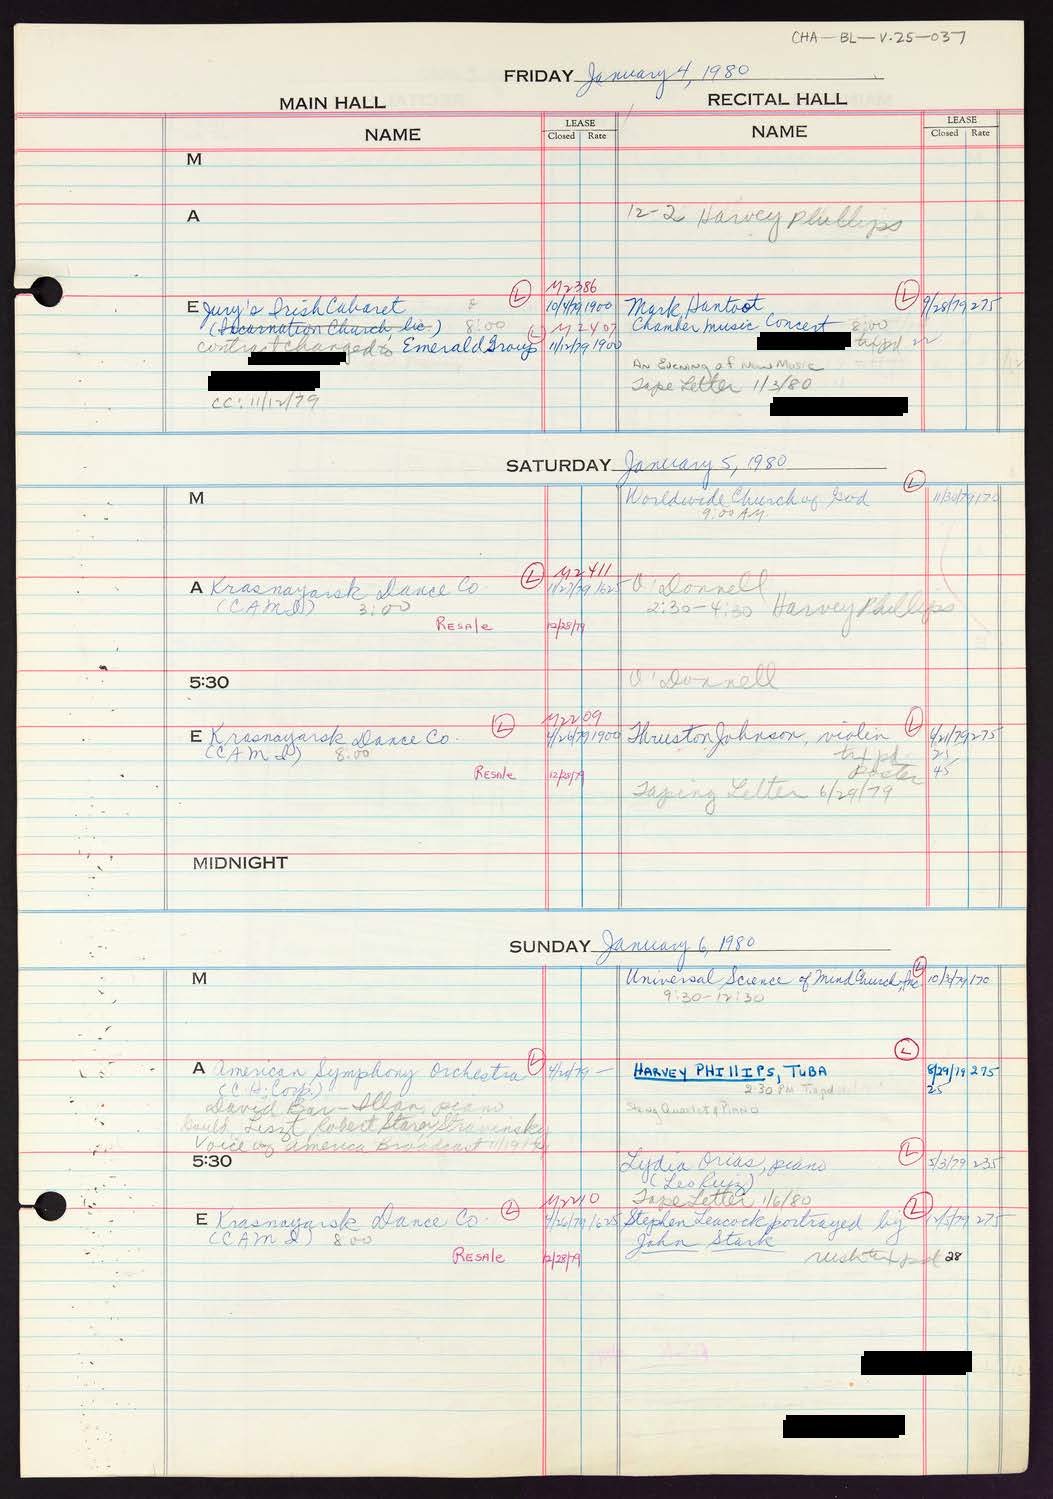 CHA-BL-V.25-037
FRIDAY January 4, 1980
MAIN HALL
RECITAL HALL
NAME
LEASE
Closed Rate
NAME
LEASE
Closed Rate
M
A
12-2 Harvey Phillips
L M2386
E Jury's Irish Cabaret 10/4/79 1900
(Incarnation Church, Inc.) 8:00 L M2407
contract changed to Emerald Group 11/12/79 1900
CC: 11/12/79
L
Mark Hantoot 9/28/79 275
Chamber music Concert 8:00
An Evening of New Music
Tape Letter 1/3/80
SATURDAY January 5, 1980
M
L
Worldwide Church of God 11/30/79 170
9:00 AM
L M2411
A Krasnayarsk Dance Co. 11/27/79 1625
(CAMI) 3:00
Resale 12/28/79
O'Donnell
2:30-4:30 Harvey Phillips
5:30
O'Donnell
L M2209
E Krasnayarsk Dance Co. 4/26/79 1900
(CAMI) 8:00
Resale 12/28/79
L
Thruston Johnson, violin 6/21/79 275
25
Poster 45
Taping Letter 6/29/79
MIDNIGHT
SUNDAY January 6, 1980
M
L
Universal Science of Mind Church, Inc 10/3/79 170
9:30-12:30
L
A American Symphony Orchestra
(C.H. Corp.)
David Bar-Illan, piano
Gould, Liszt, Robert Starer, Stravinsky
Voice of America Broadcast
L
HARVEY PHILLIPS, TUBA 8/29/79 275
2:30 PM 25
String Quartet & Piano
5:30
L
Lydia Orias, piano 5/3/79 235
(Leo Ruiz)
Tape Letter 1/6/80
L M2210
E Krasnayarsk Dance Co. 4/26/79 1625
(CAMI) 8:00
Resale 12/28/79
L
Stephen Leacock portrayed by 275
John Stark
28